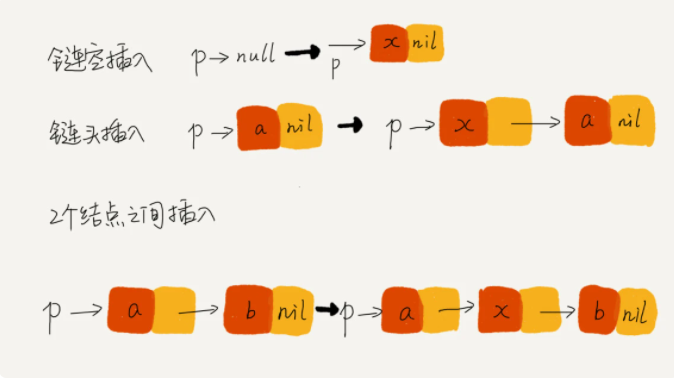 链空插入 p→null→p→x nil
链头插入 p→a nil→p→x→a nil
2个结点之间插入
p→a→b nil→p→a→x→b nil